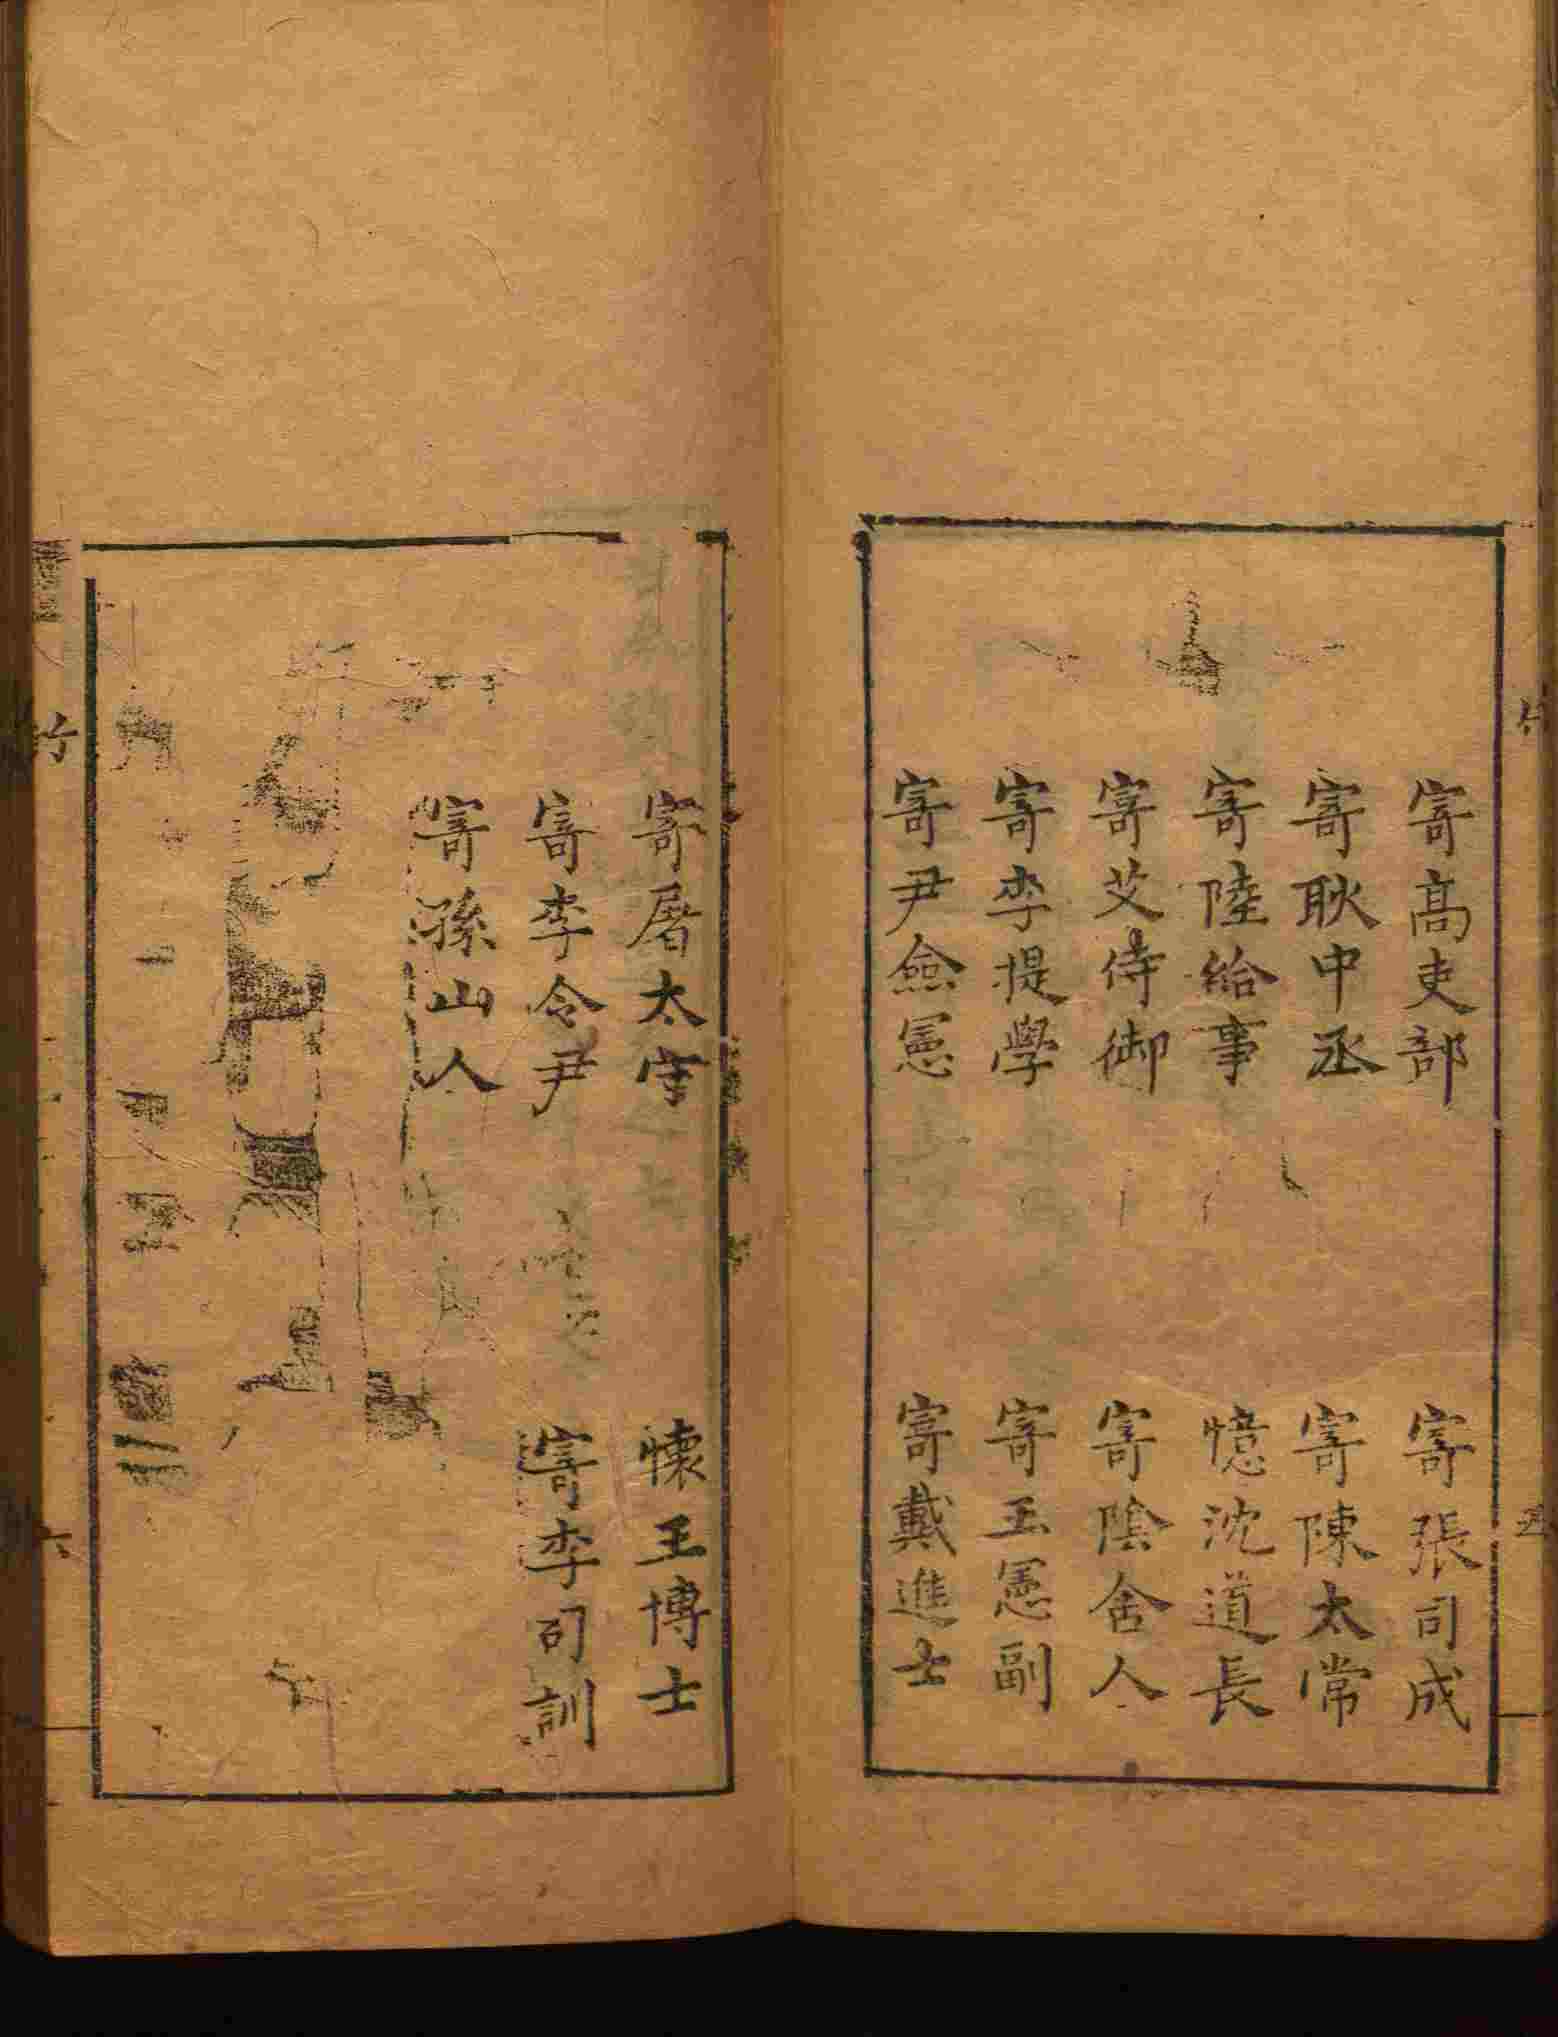 寄高吏部　寄張司成
寄耿中丞　寄陳太常
寄陸給事　憶沈道長
寄艾侍御　寄陰舍人
寄李提學　寄王憲副
寄尹僉憲　寄戴進士
寄屠太宰　懷王博士
寄李令尹　寄李司訓
寄孫山人
竹
六